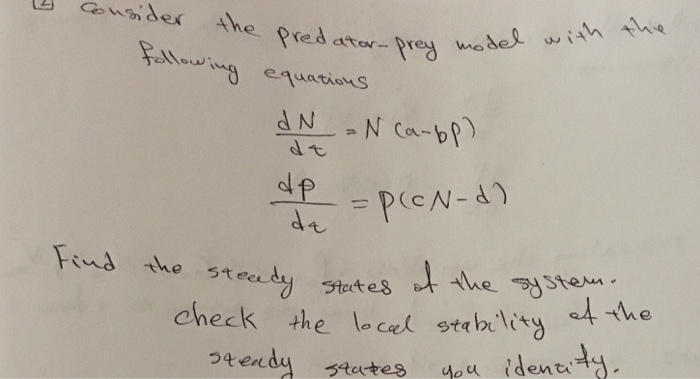 2 Consider the predator-prey model with the
following equations
dN/dt = N(a-bp)
dp/dt = p(cN-d)
Find the steady states of the system.
check the local stability of the
steady states you identify.